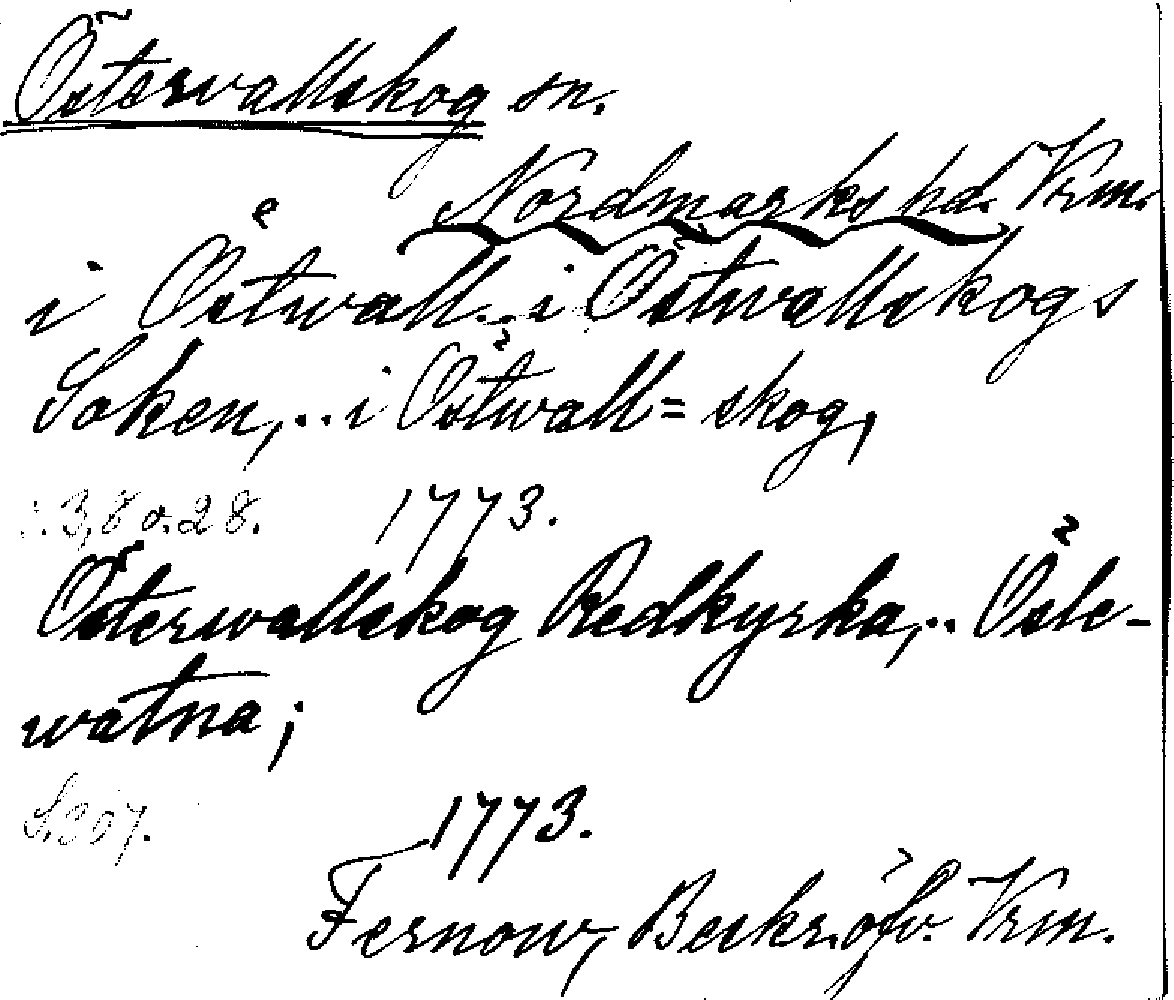 Östervallskog sn.
Nordmarks hd. Vrm.
i Östwall.. i Östwallskogs
Soken,.. i Östwall= skog,
s. 3,8 o. 28. 1773.
Österwallskog Redkyrka,.. Öste-
watna;
S. 207. 1773.
Fernow, Beskr. öfv. Vrm.